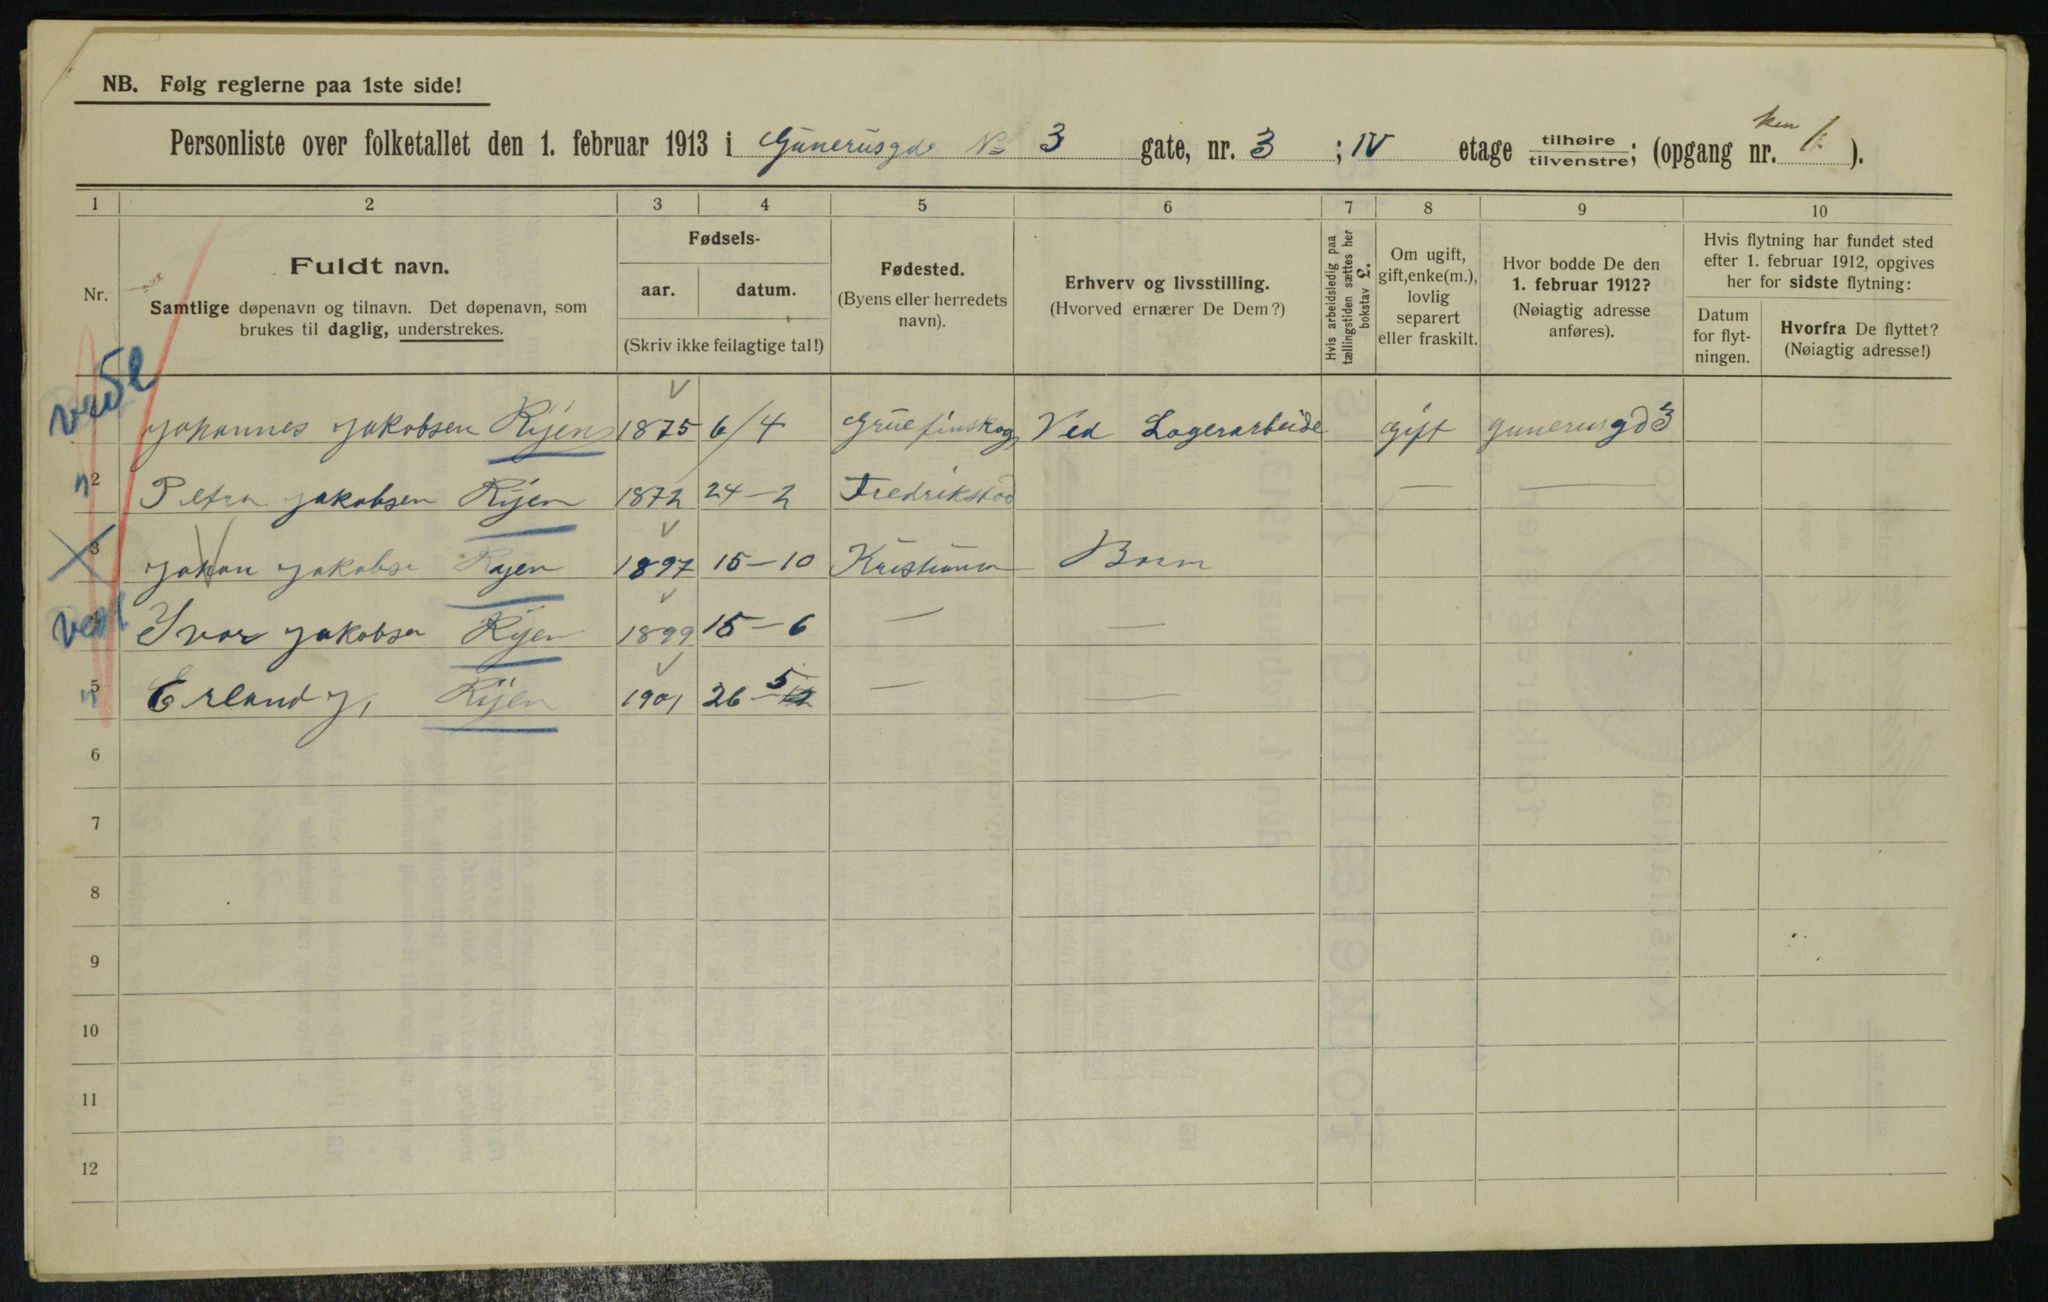 NB. Følg reglerne paa 1ste side!
Personliste over folketallet den 1. februar 1913 i Gunerusgde No 3 gate, nr. 3 ; IV etage tilhøire / tilvenstre; (opgang nr. 1).
1 2 3 4 5 6 7 8 9 10
Nr.
Fuldt navn.
Samtlige døpenavn og tilnavn. Det døpenavn, som
brukes til daglig, understrekes.
Fødsels-
aar. datum.
(Skriv ikke feilagtige tal!)
Fødested.
(Byens eller herredets
navn).
Erhverv og livsstilling.
(Hvorved ernærer De Dem?)
Hvis arbeidsledig paa
tællingstiden sættes her
bokstav L.
Om ugift,
gift, enke(m.),
lovlig
separert
eller fraskilt.
Hvor bodde De den
1. februar 1912?
(Nøiagtig adresse
anføres).
Hvis flytning har fundet sted
efter 1. februar 1912, opgives
her for sidste flytning:
Datum
for flyt-
ningen.
Hvorfra De flyttet?
(Nøiagtig adresse!)
Johannes Jakobsen Rÿen 1875 6/4 Grue finskog Ved Lagerarbeide gift gunerusgd 3
2 Petra Jakobsen Rÿen 1872 24-2 Fredrikstad — —
3 Johan Jakobse Rÿen 1897 15-10 Kristiania Barn
4 Ivar Jakobsen Rÿen 1899 15-6 — —
5 Erland J, Rÿen 1901 26-5 — —
6
7
8
9
10
11
12